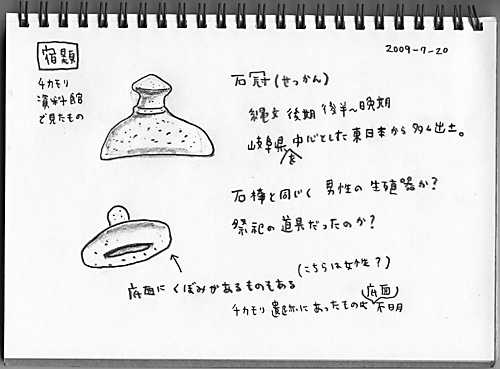 2009-7-20
宿題
チカモリ
資料館
で見たもの
石冠(せっかん)
縄文後期後半〜晩期
岐阜県を中心とした東日本から多く出土。
石棒と同じく 男性の生殖器か?
祭祀の道具だったのか?
(こちらは女性?)
底面にくぼみがあるものもある
チカモリ遺跡にあったものも底面不明